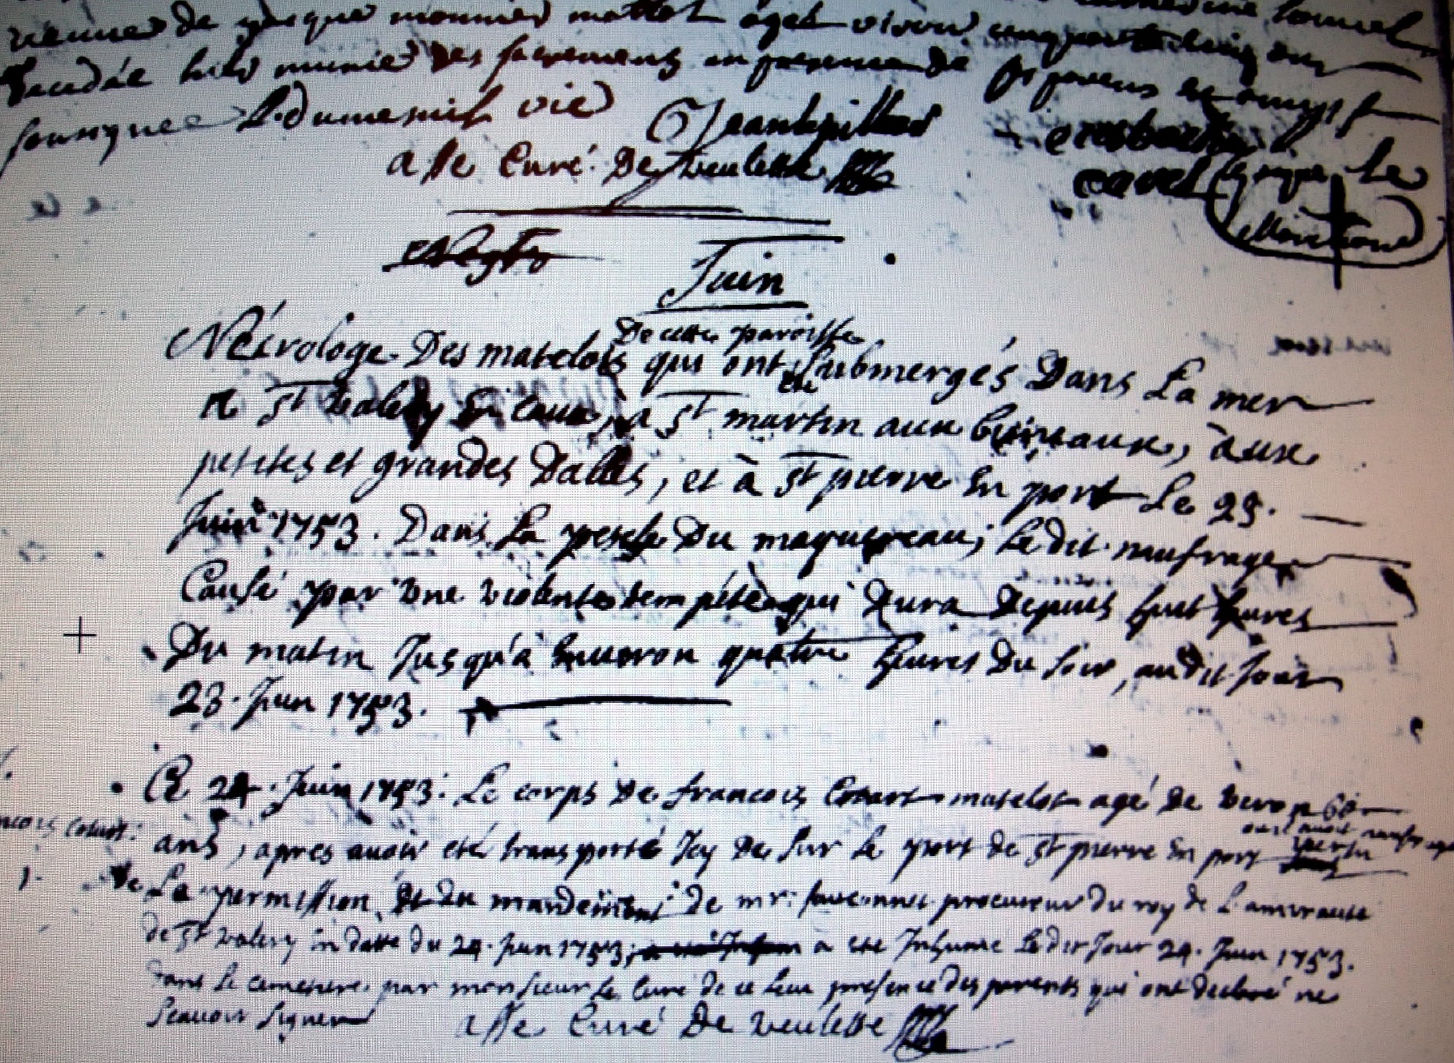 de quelque monnier matelot agé viron cinquante cinq ans
decedée hier munie des sacrements en presence de ses parens
L. dumenil vic
asse Curé De veulette
Juin
De cette paroisse
Nécrologe Des matelots qui ont submergés Dans La mer
a St Valery En Caux, a St martin aux buneaux, aux
petites et grandes Dalles, et à St pierre En port Le 23.
Juin 1753. Dans La pesche Du maquereau; Le dit naufrage
Causé par Une violente tempête qui Dura Depuis huit heures
Du matin Jusqu'à Environ quatre heures Du soir, audit Jour
23. Juin 1753.
Ce 24. Juin 1753. Le corps De francois Cottart matelot agé de viron 60
francois cottart:
ans, apres avoir eté transporté Icy De Sur Le port de St pierre En port
ou il avoit naufragé
pertu
1.
De La permission et du mandement De mr procureur Du roy de L'amirauté
de St valery En datte du 24. Juin 1753; a eté Inhumé Le dit Jour 24. Juin 1753.
dans Le cemetiere par monsieur le Curé de ce Lieu presence des parents qui ont declaré ne
Scavoir Signer
asse Curé De veulette